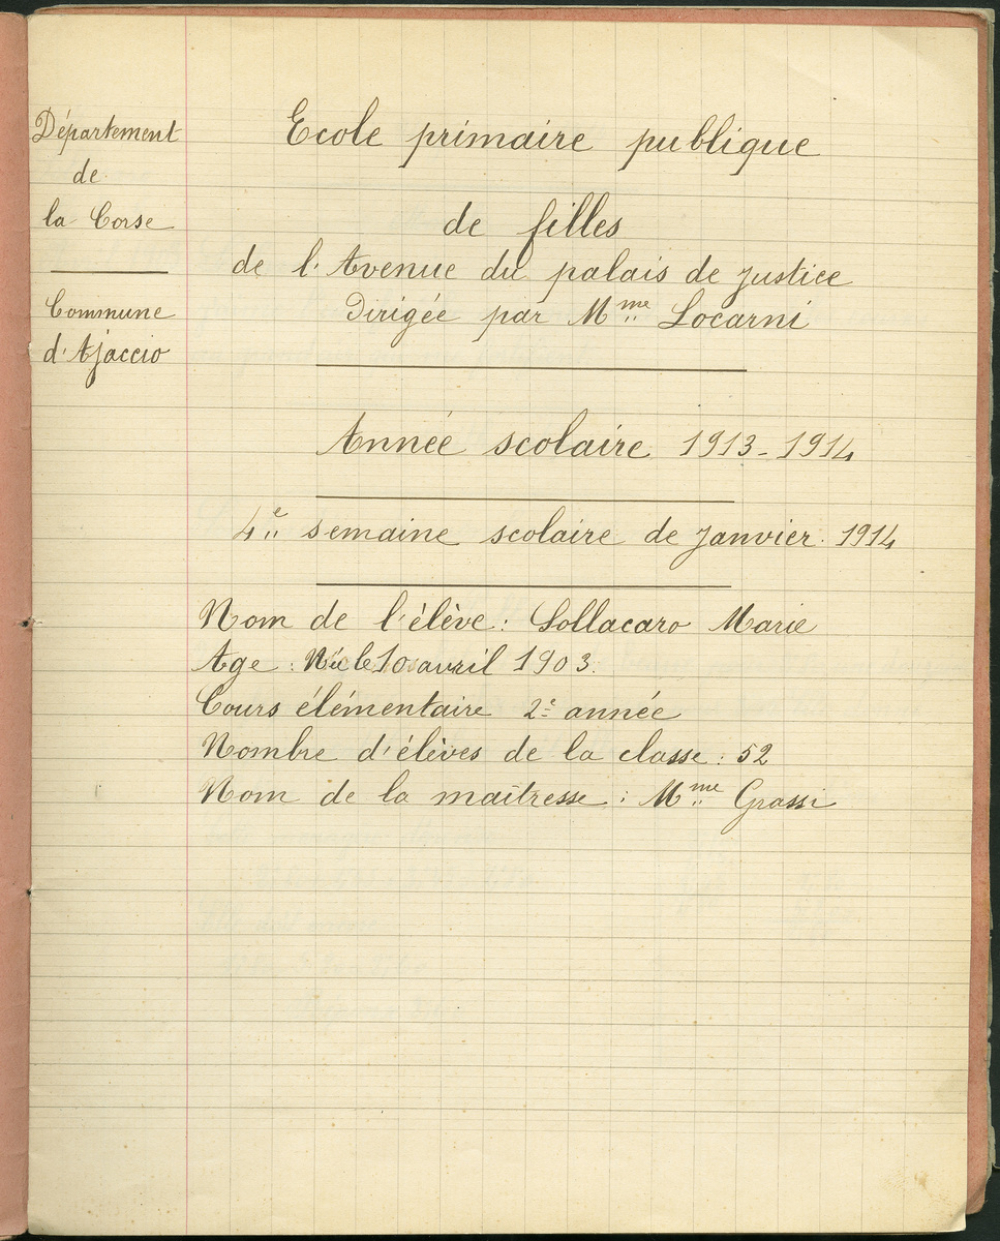 Département
de
la Corse
Commune
d'Ajaccio
Ecole primaire publique
de filles
de l'Avenue du palais de justice
Dirigée par Mme Locarni
Année scolaire 1913-1914
4e semaine scolaire de janvier 1914
Nom de l'élève : Lollacaro Marie
Age : Née le 10 avril 1903.
Cours élémentaire 2e année
Nombre d'élèves de la classe : 52
Nom de la maîtresse : Mme Grassi